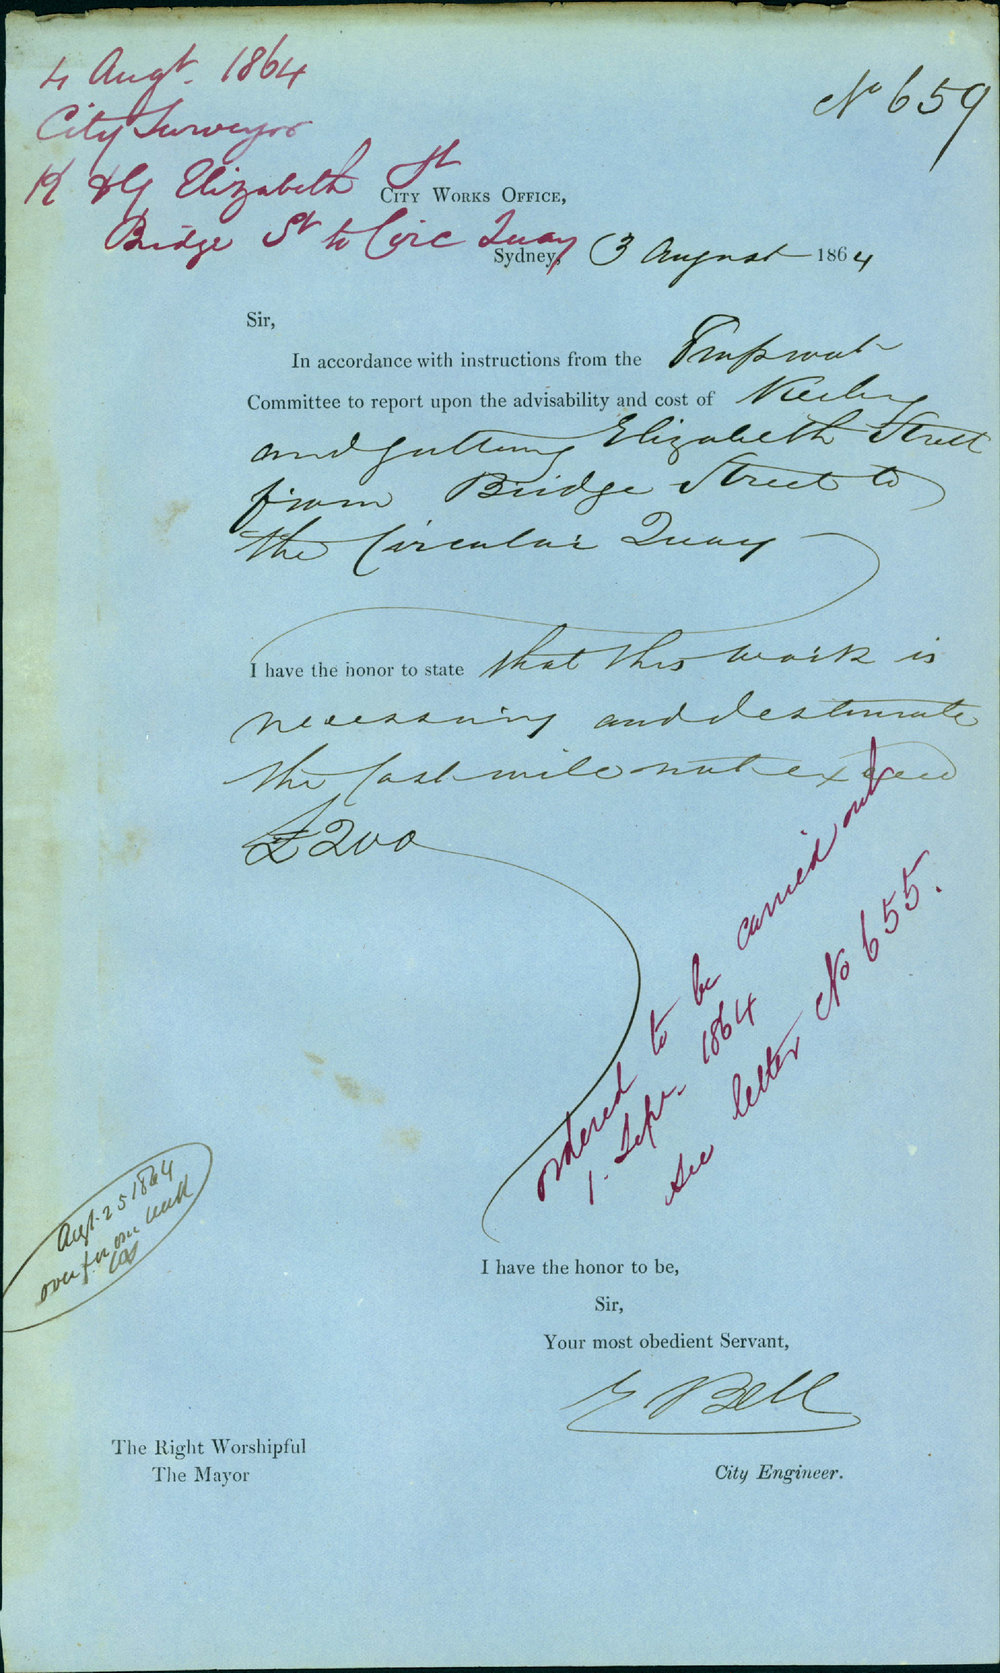 4 Augt. 1864
City Surveyor
K & G Elizabeth St
Bridge St to Circ Quay
No 659
City Works Office,
Sydney, 3 August 1864
Sir,
In accordance with instructions from the Improvmt
Committee to report upon the advisability and cost of Kerbing
and guttering Elizabeth Street
from Bridge Street to
the Circular Quay
I have the honor to state that this work is
necessary and I estimate
the Cost will not exceed
£200
ordered to be carried out
1. Sepr. 1864
See letter No 655.
Augt 25 1864
over for one week
I have the honor to be,
Sir,
Your most obedient Servant,
E Bell
City Engineer.
The Right Worshipful
The Mayor